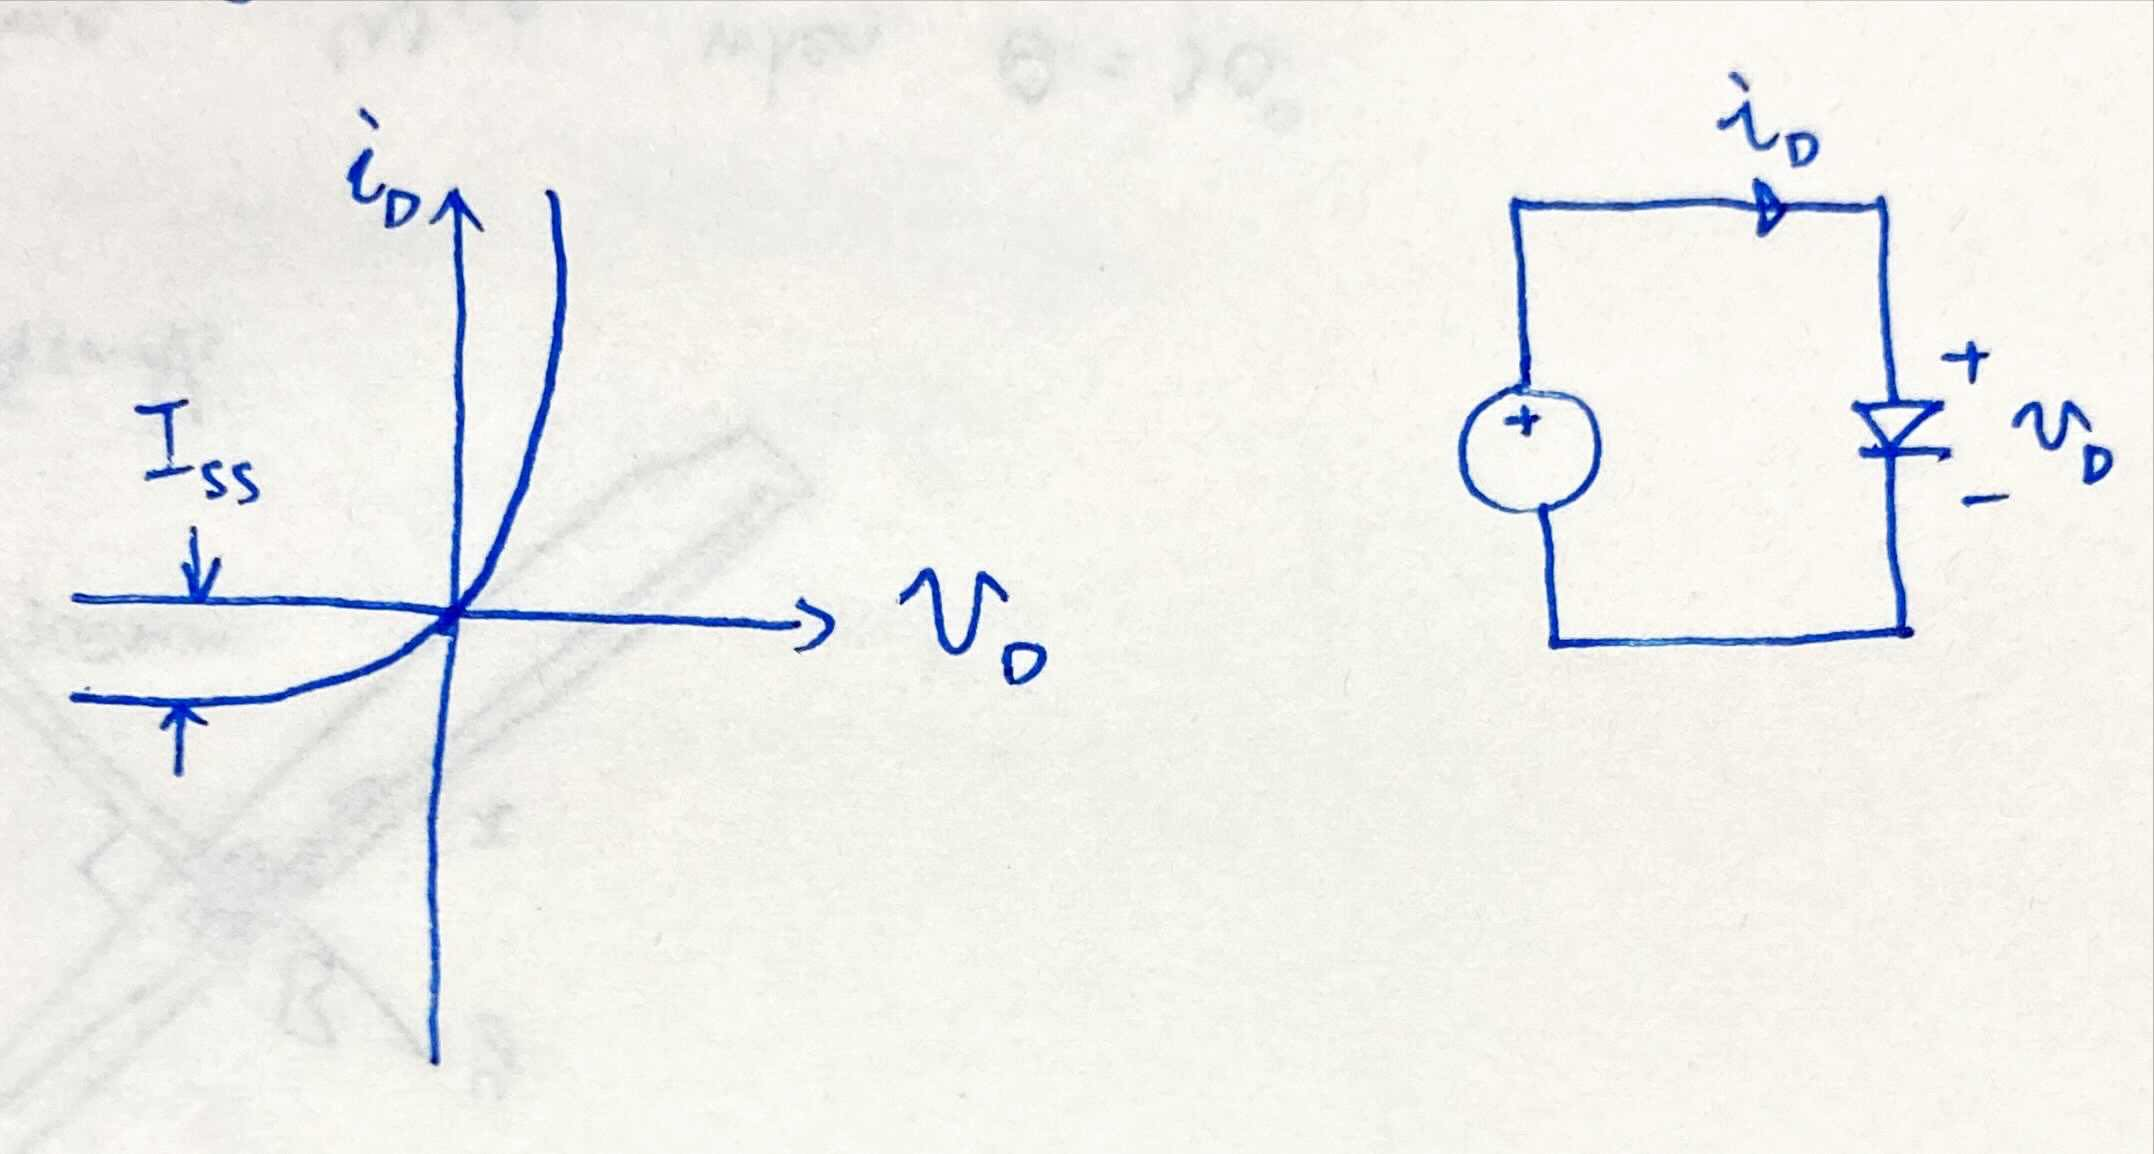 i_D
I_SS
v_D
i_D
+
+
v_D
−